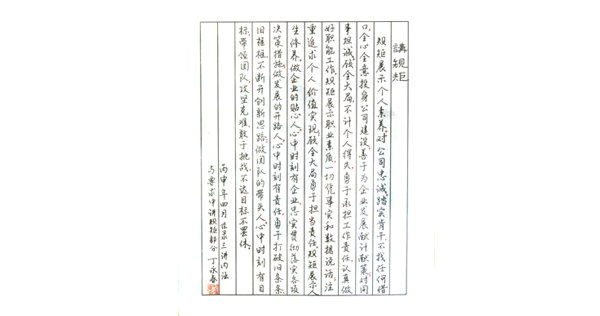 講規矩
規矩展示个人素养,对公司忠誠,踏实肯干,不找任何借
口,全心全意投身公司建设,善于为企业发展献计献策,对同
事坦诚,顾全大局,不计个人得失,勇于承担工作责任,认真做
好职能工作,规矩展示职业素质,一切凭事实和数据说话,注
重追求个人价值实现,顾全大局,勇于担当责任,规矩展示人
生修养,做企业的贴心人,心中时刻有企业,忠实贯彻落实各项
决策措施,做发展的开路人,心中时刻有责任,勇于打破旧条条
旧框框,不断开创新思路,做团队的带头人,心中时刻有目
标,带领团队,攻坚克难,敢于挑战,不达目标不罢休。
丙申年四月 三讲内法
与要求中讲规矩部分 丁永春